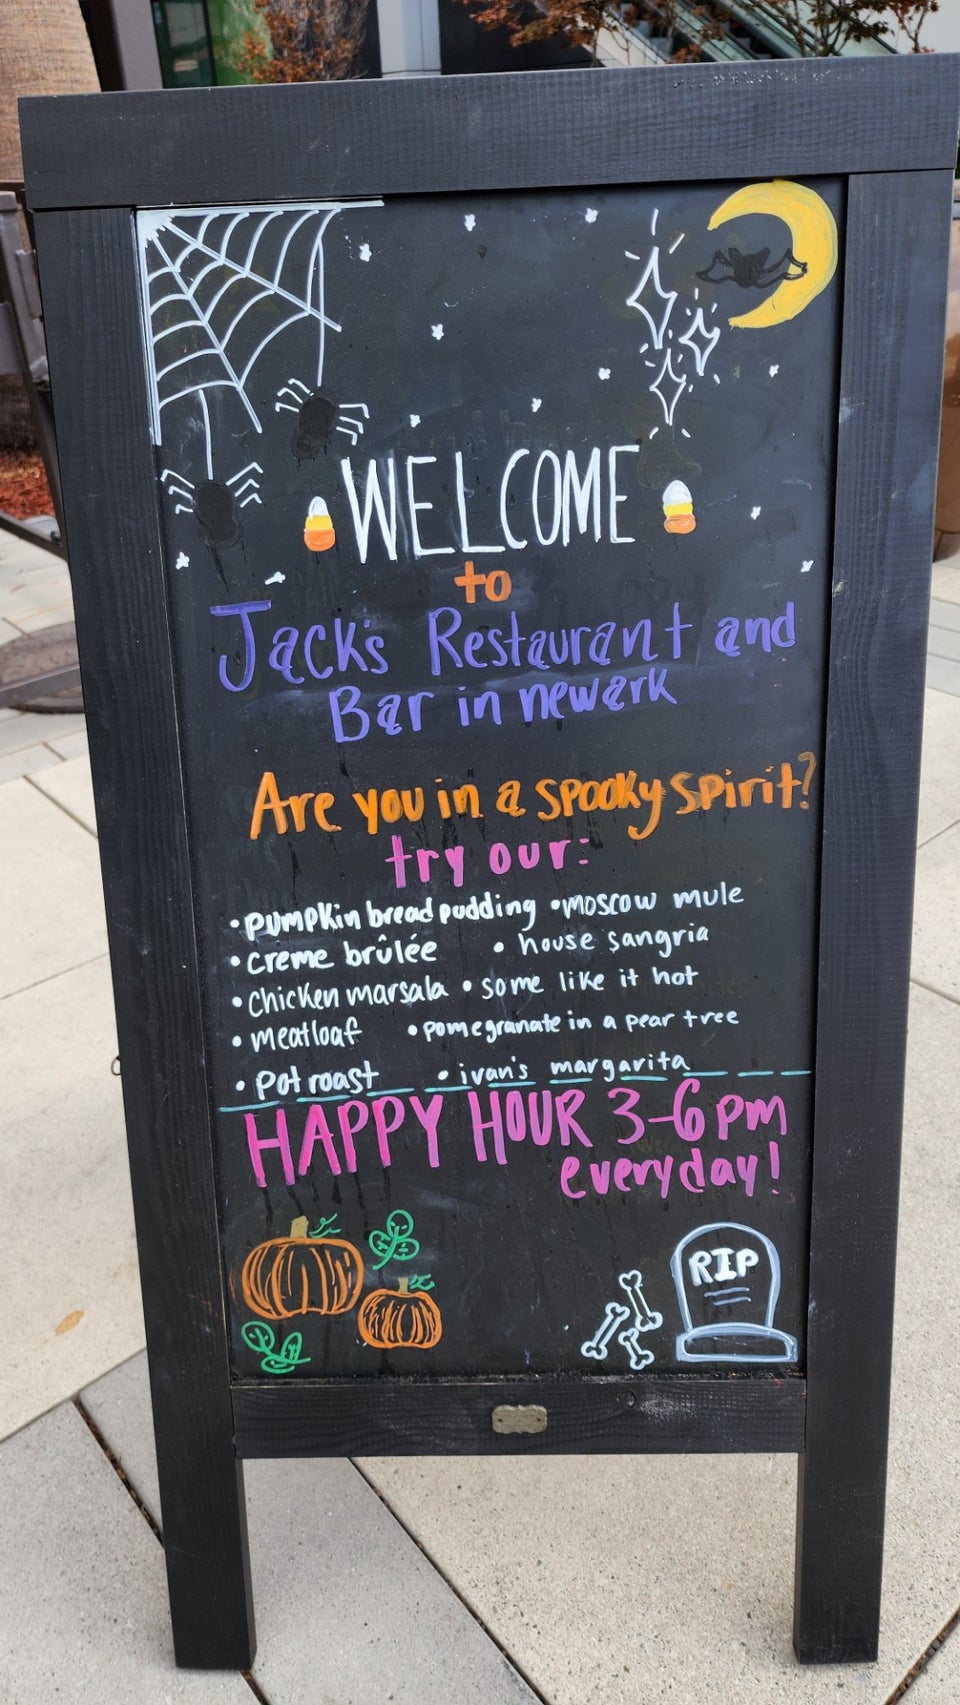 WELCOME
to
Jack's Restaurant and
Bar in newark
Are you in a spooky spirit?
try our:
• pumpkin bread pudding • moscow mule
• creme brûlée • house sangria
• chicken marsala • some like it hot
• meatloaf • pomegranate in a pear tree
• pot roast • ivan's margarita
HAPPY HOUR 3-6pm
everyday!
RIP